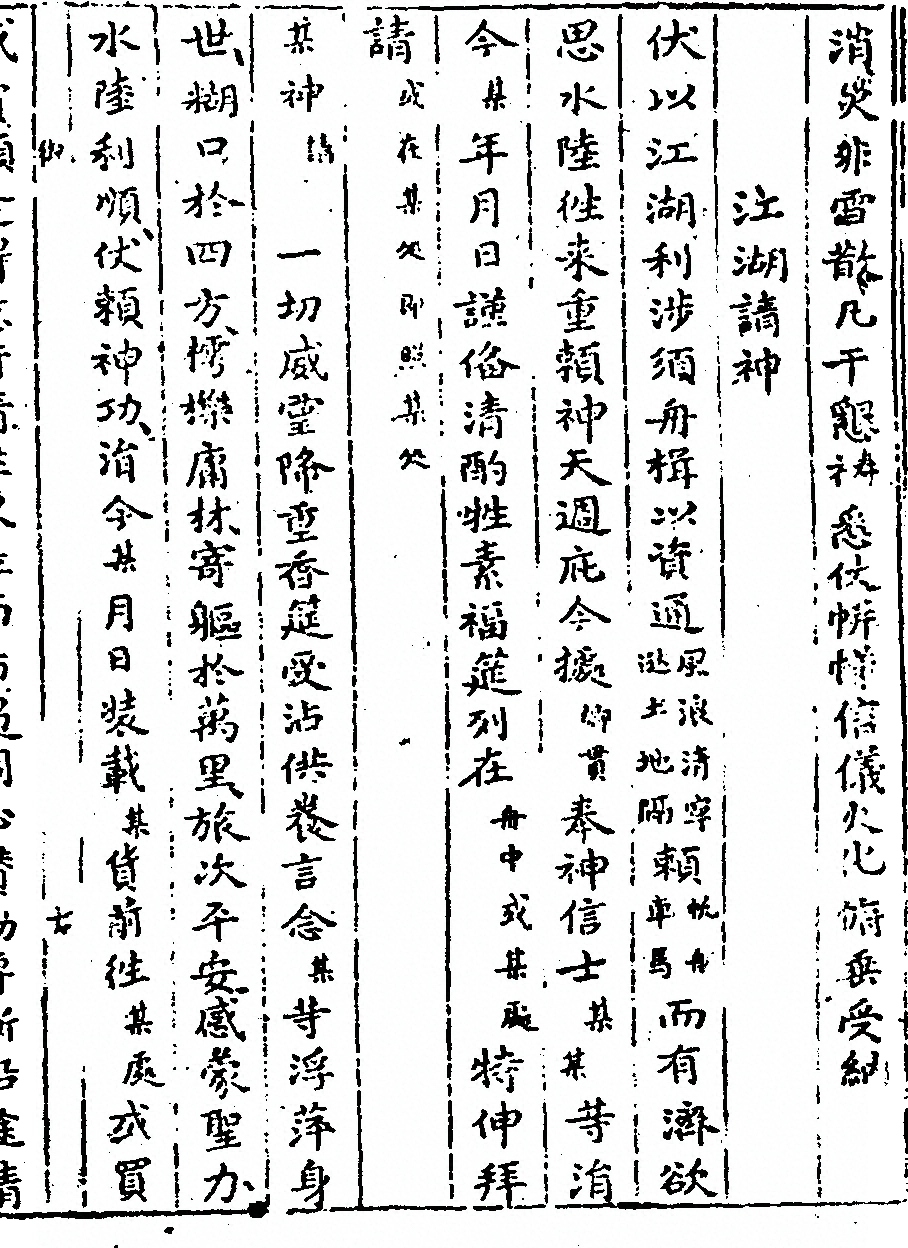 消災非雪散凡干懇禱悉仗帡幪信儀火化俯垂受納
江湖請神
伏以江湖利涉須舟楫以資通風浪清寧遙土地隔賴帆舟車馬而有濟欲
思水陸徃來重賴神天週庇今據鄉貫奉神信士某某等涓
今某年月日謹俻清酌牲素福筵列在舟中或某處特伸拜
請或在某处即照某处
某神請一切威靈降重香筵受沾供養言念某等浮萍身
世糊口於四方樗櫟庸材寄軀於萬里旅次平安感蒙聖力
水陸利順伏賴神功涓今某月日装載某貨前徃某處或買